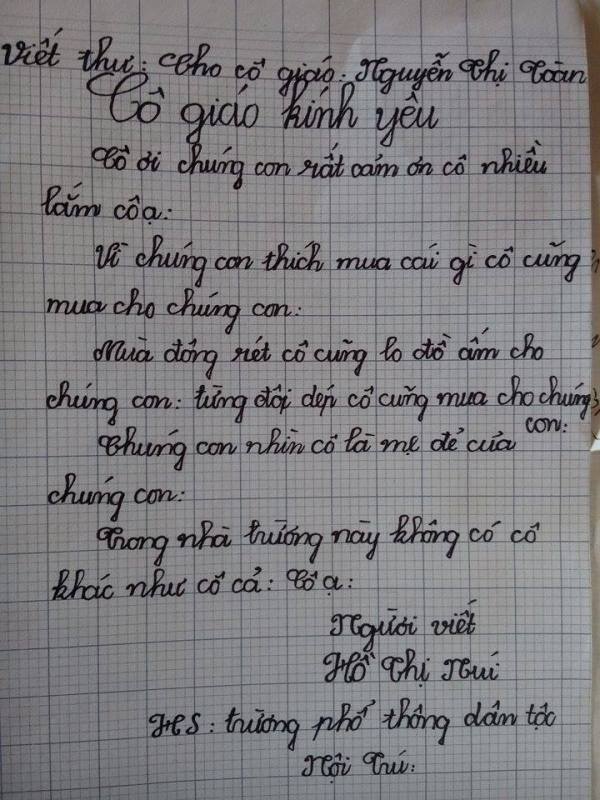 Viết thư: Cho cô giáo: Nguyễn Thị Toàn
Cô giáo kính yêu
Cô ơi chúng con rất cám ơn cô nhiều
lắm cô ạ:
Vì chúng con thích mua cái gì cô cũng
mua cho chúng con:
Mùa đông rét cô cũng lo đồ ấm cho
chúng con: từng đôi dép cô cũng mua cho chúng
con:
Chúng con nhìn cô là mẹ đẻ của
chúng con:
Trong nhà trường này không có cô
khác như cô cả: Cô ạ:
Người viết
Hồ Thị Núi
HS: trường phổ thông dân tộc
Nội Trú: